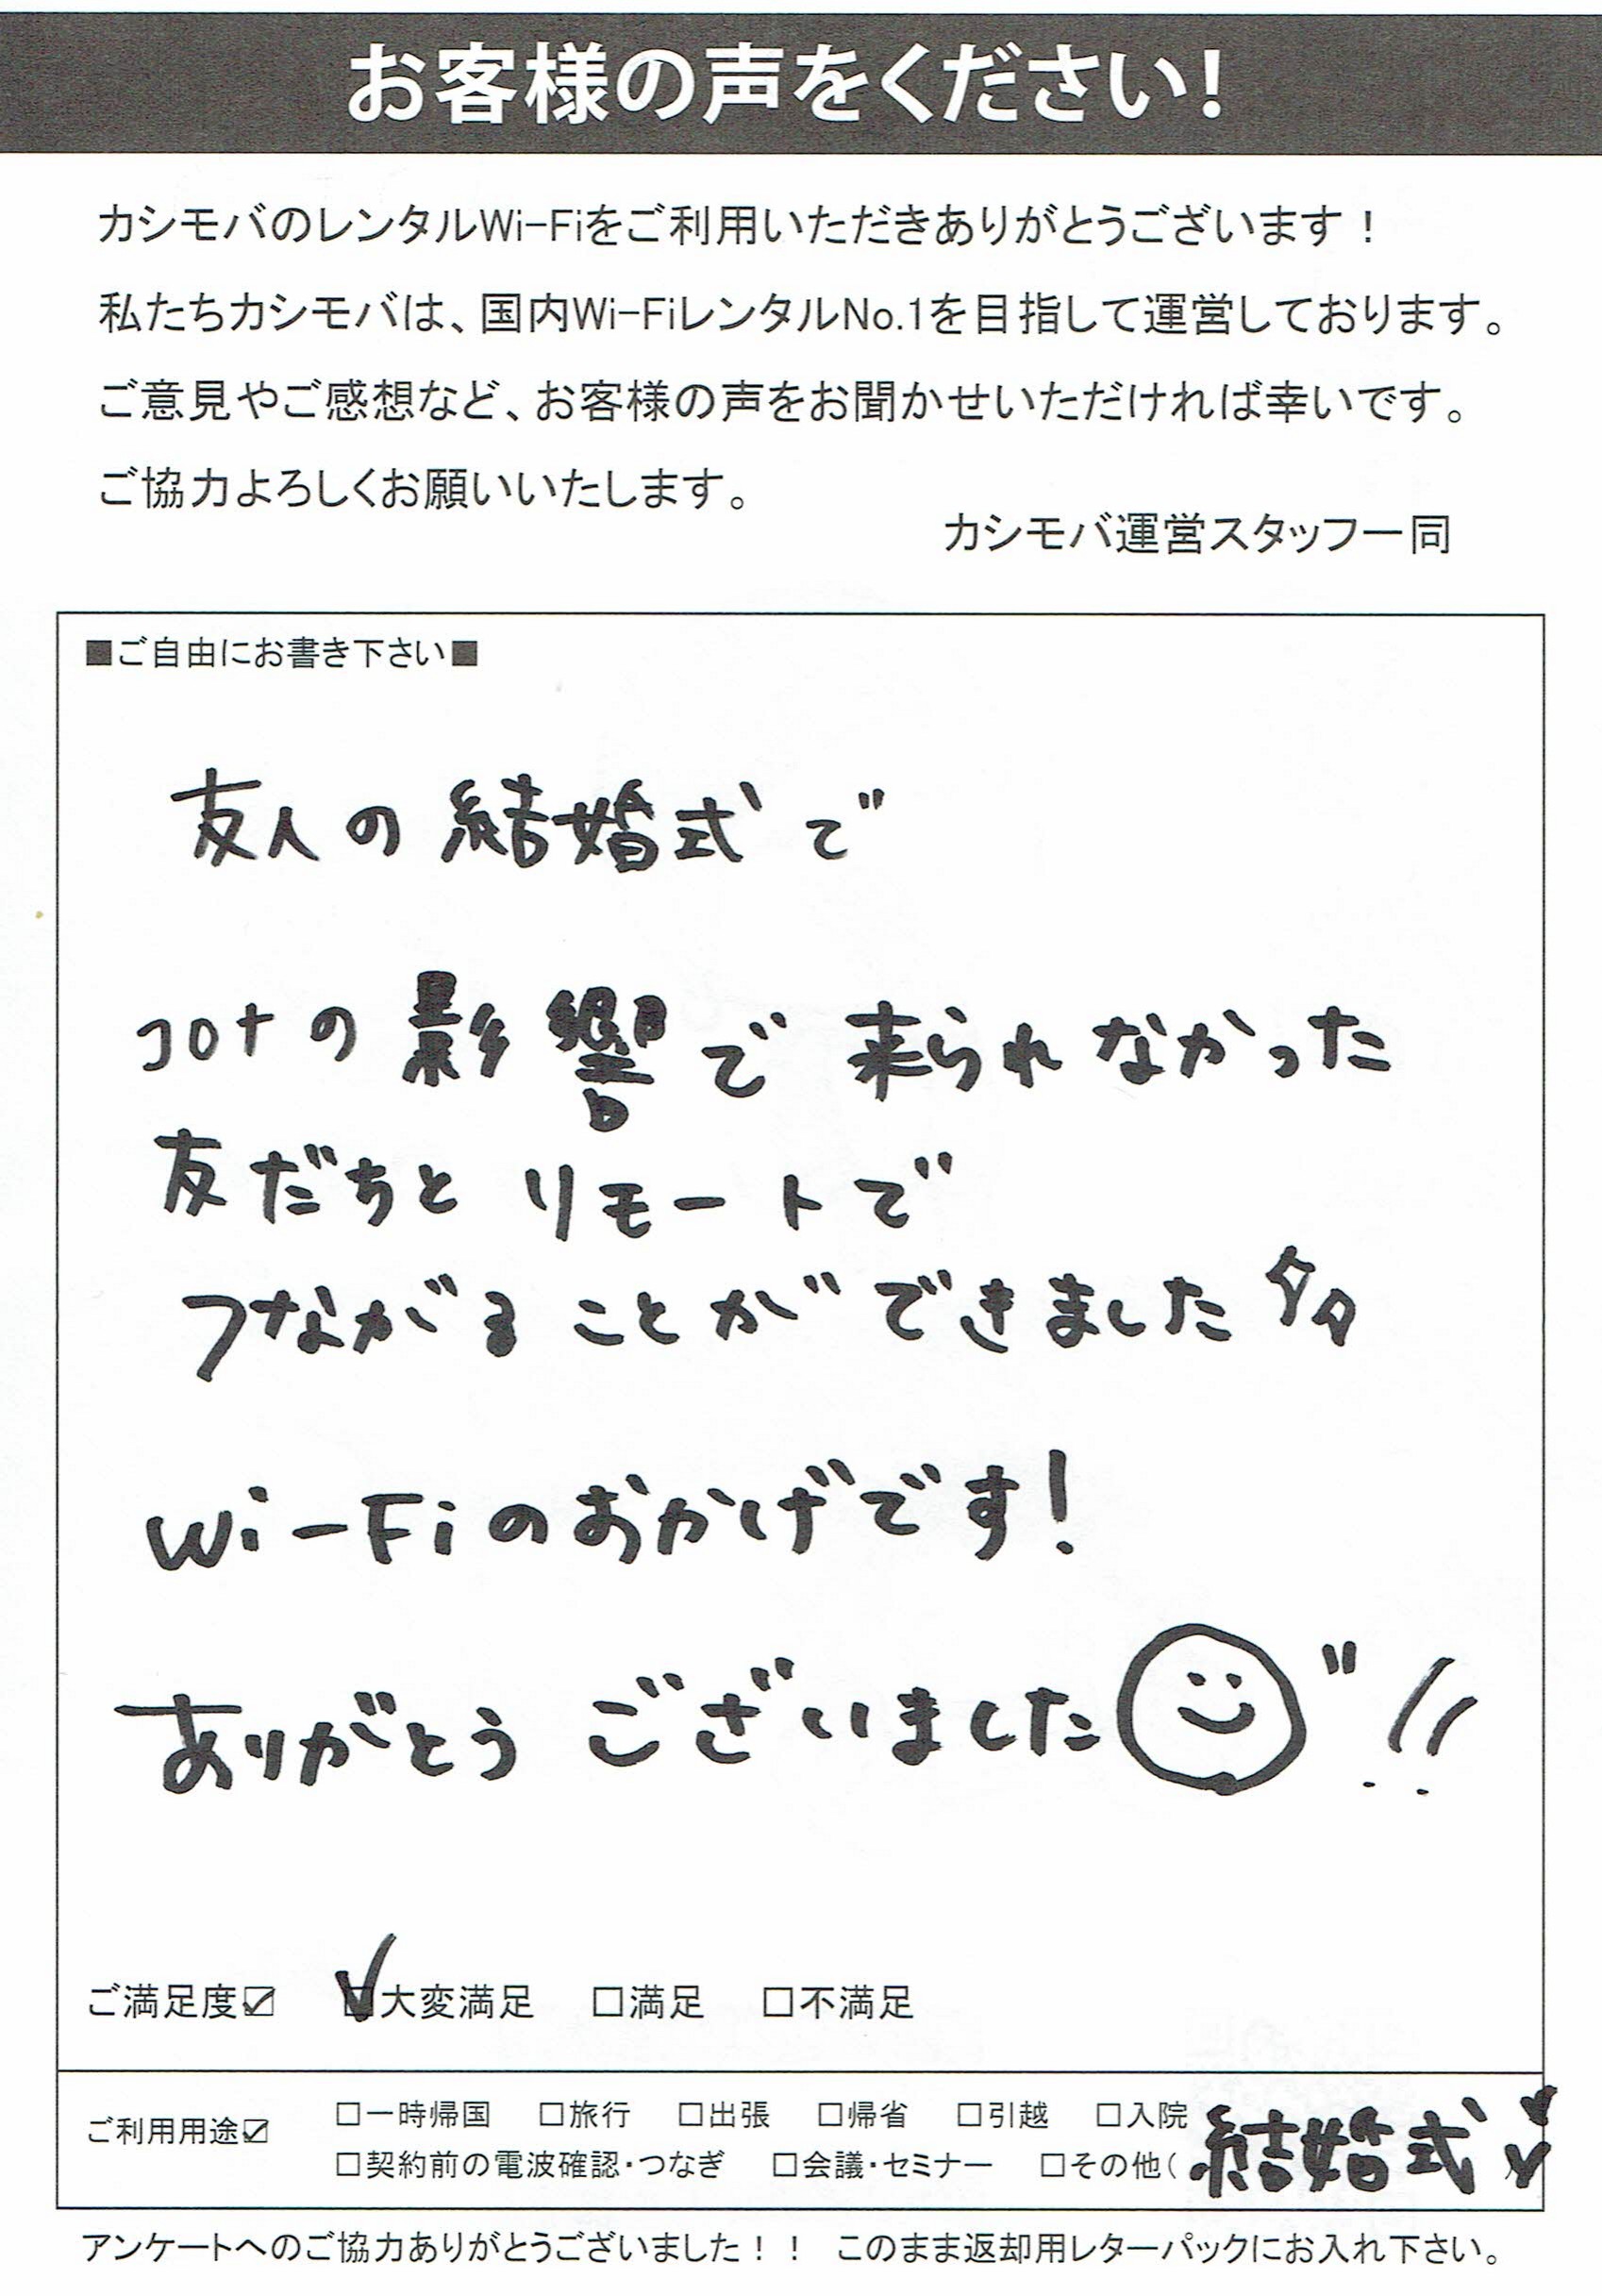 お客様の声をください!
カシモバのレンタルWi-Fiをご利用いただきありがとうございます!
私たちカシモバは、国内Wi-FiレンタルNo.1を目指して運営しております。
ご意見やご感想など、お客様の声をお聞かせいただければ幸いです。
ご協力よろしくお願いいたします。
カシモバ運営スタッフ一同
■ご自由にお書き下さい■
友人の結婚式で
コロナの影響で来られなかった
友だちとリモートで
つながることができました
Wi-Fiのおかげです!
ありがとうございました!!
ご満足度☑ ☑大変満足 □満足 □不満足
ご利用用途☑ □一時帰国 □旅行 □出張 □帰省 □引越 □入院
□契約前の電波確認・つなぎ □会議・セミナー □その他(結婚式)
アンケートへのご協力ありがとうございました!! このまま返却用レターパックにお入れ下さい。